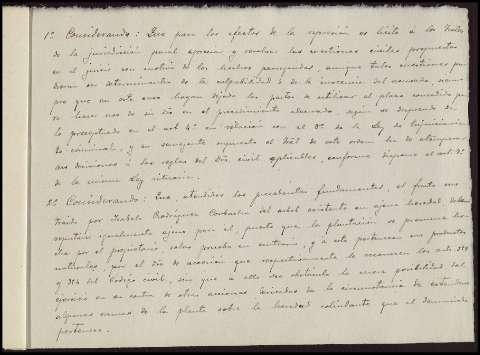 1º Considerando: Que para los efectos de la represión es lícito á los Trales
de la jurisdicción penal apreciar y resolver las cuestiones civiles propuestas
en el juicio con motivo de los hechos perseguidos, aunque tales cuestiones pu-
dieran ser determinantes de la culpabilidad ó de la inocencia del acusado, siem-
pre que en este caso hayan dejado las partes de utilizar el plazo concedido pa-
ra hacer uso de su dro en el procedimiento adecuado, según se desprende de
lo preceptuado en el art 4º en relación con el 3º de la Ley de Enjuiciamien-
to criminal, y en semejante supuesto el Tral de este orden ha de atemperar
sus decisiones á las reglas del Dro civil aplicables, conforme dispone el art 7º
de la misma Ley rituaria.
2º Considerando: Que, atendidos los precedentes fundamentos, el fruto sus-
traído por Isabel Rodríguez del arbol existente en ajena heredad debe
reputarse igualmente ajeno para él, puesto que la plantación se presume he-
cha por el propietario, salvo prueba en contrario, y á este pertenecen sus productos
naturales, por el dro de accesión que respectivamente le reconocen los arts 359
y 354 del Código civil, sin que á ello sea obstáculo la mera posibilidad del
ejercicio en su contra de otras acciones derivadas de la circunstancia de extenderse
algunas ramas de la planta sobre la heredad colindante que al denunciado
pertenece.